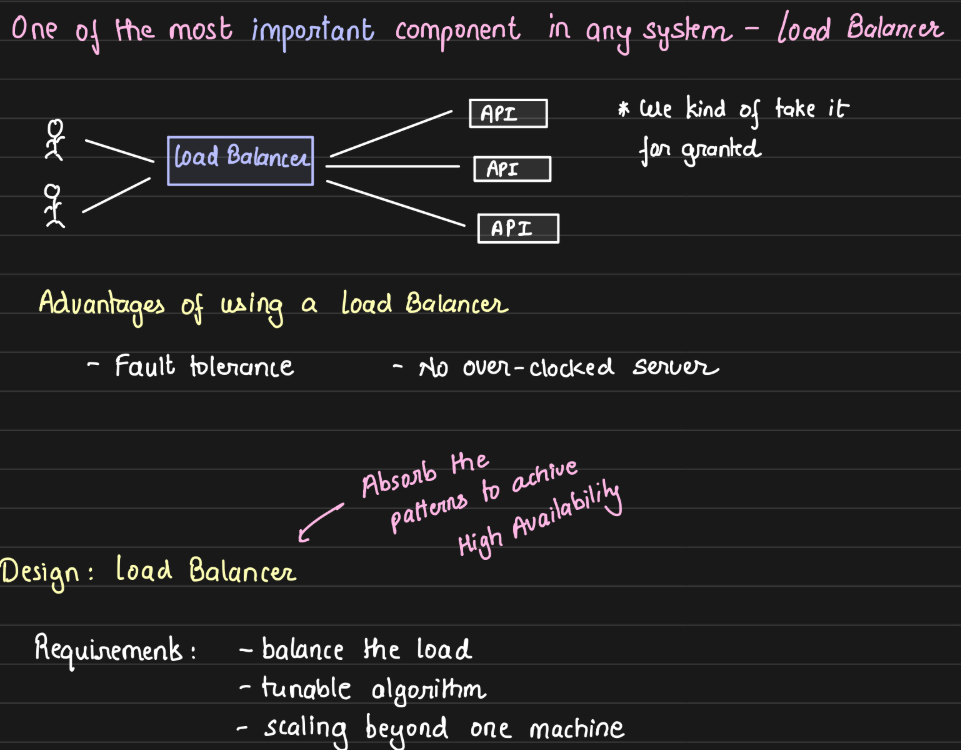 One of the most important component in any system - Load Balancer
Load Balancer
API
API
API
* We kind of take it
for granted
Advantages of using a Load Balancer
- Fault tolerance - No over-clocked server
Absorb the
patterns to achive
High Availability
Design: Load Balancer
Requirements: - balance the load
- tunable algorithm
- scaling beyond one machine